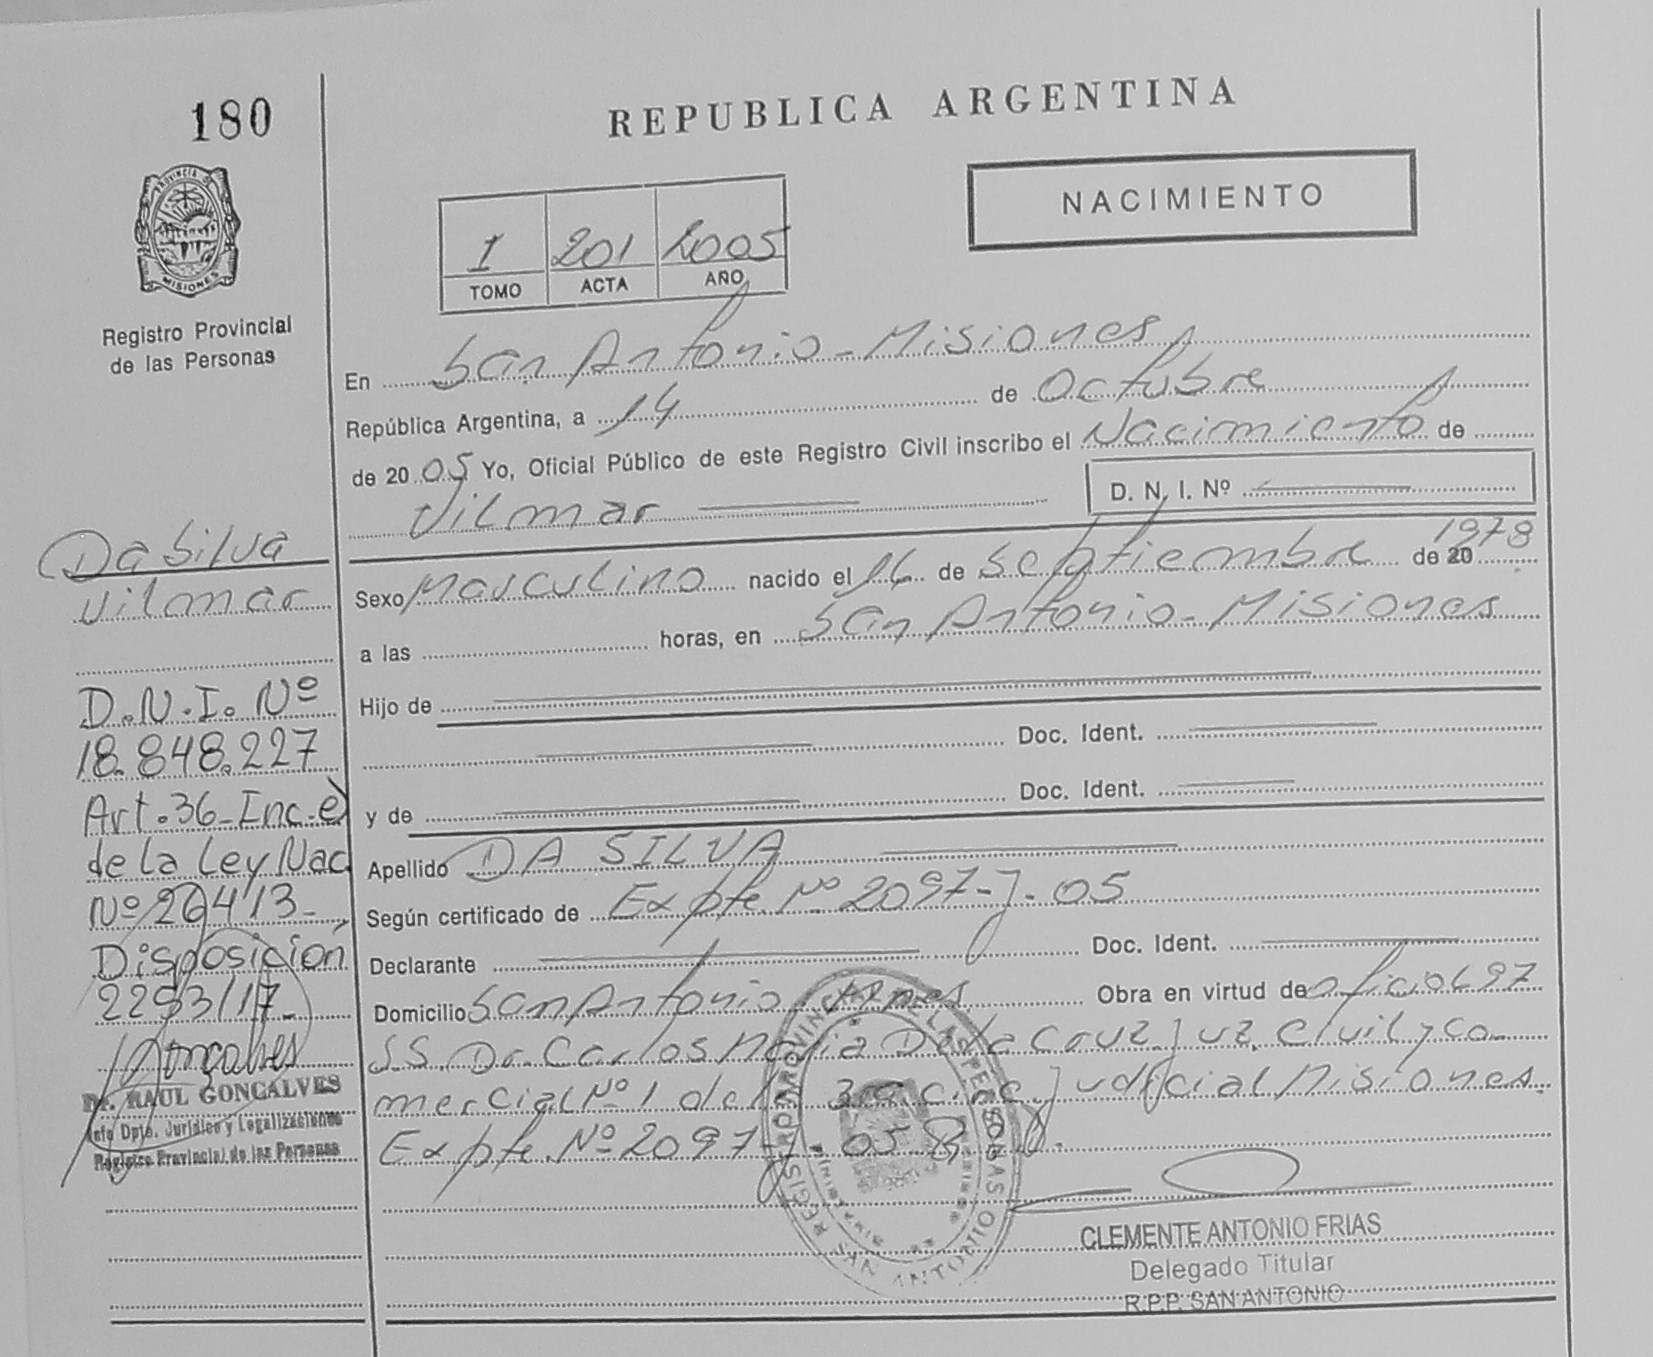 180
REPUBLICA ARGENTINA
NACIMIENTO
PROVINCIA DE
MISIONES
Registro Provincial
de las Personas
I 201 2005
TOMO ACTA AÑO
En San Antonio - Misiones
República Argentina, a 14 de Octubre
de 2005 Yo, Oficial Público de este Registro Civil inscribo el Nacimiento de
Vilmar D. N. I. Nº
Sexo Masculino nacido el de Septiembre de 20 1978
a las horas, en San Antonio - Misiones
Hijo de
Doc. Ident.
y de Doc. Ident.
Apellido DA SILVA
Según certificado de Expte. Nº 2097-J-05
Declarante Doc. Ident.
Domicilio San Antonio Mnes Obra en virtud de oficio 697
SS. Dr. Carlos Maria De la Cruz Juz. Civil y Co
mercial Nº 1 de la 3ra circ. Judicial Misiones
Expte. Nº 2097 J 05
CLEMENTE ANTONIO FRIAS
Delegado Titular
R.P.P. SAN ANTONIO
REGISTRO PROVINCIAL DE LAS PERSONAS
SAN ANTONIO
MINISTERIO
Da Silva
Vilmar
D.N.I. Nº
18.848.227
Art. 36 - Inc. e)
de la Ley Nac.
Nº 26413 -
Disposición
2293/17 -
Gonçalves
Dr. RAUL GONCALVES
Jefe Dpto. Jurídico y Legalizaciones
Registro Provincial de las Personas